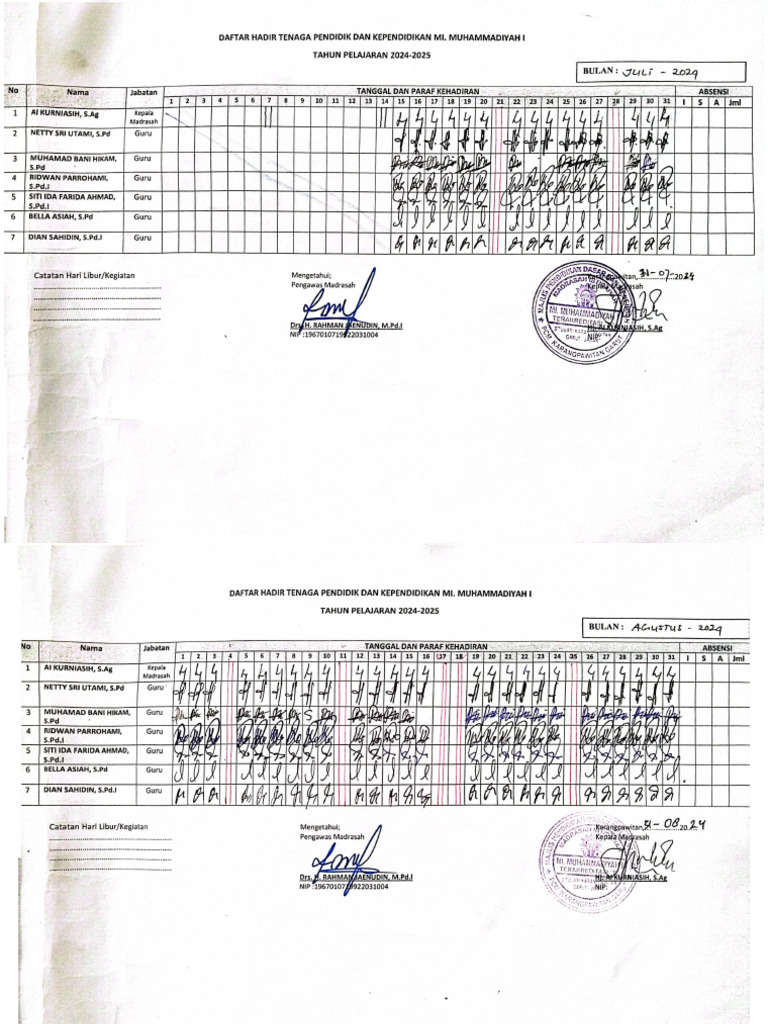 DAFTAR HADIR TENAGA PENDIDIK DAN KEPENDIDIKAN MI. MUHAMMADIYAH I
TAHUN PELAJARAN 2024-2025
BULAN : JULI - 2024
No Nama Jabatan TANGGAL DAN PARAF KEHADIRAN ABSENSI
1 2 3 4 5 6 7 8 9 10 11 12 13 14 15 16 17 18 19 20 21 22 23 24 25 26 27 28 29 30 31 I S A Jml
1 AI KURNIASIH, S.Ag Kepala Madrasah
2 NETTY SRI UTAMI, S.Pd Guru
3 MUHAMAD BANI HIKAM, S.Pd Guru
4 RIDWAN PARROHAMI, S.Pd.I Guru
5 SITI IDA FARIDA AHMAD, S.Pd.I Guru
6 BELLA ASIAH, S.Pd Guru
7 DIAN SAHIDIN, S.Pd.I Guru
Catatan Hari Libur/Kegiatan
Mengetahui;
Pengawas Madrasah
Drs. H. RAHMAN JAENUDIN, M.Pd.I
NIP :1967010719922031004
Karangpawitan, 31-07-2024
Kepala Madrasah
Hj. AI KURNIASIH, S.Ag
NIP:
MAJLIS PENDIDIKAN DASAR
MI. MUHAMMADIYAH
TERAKREDITASI
PCM. KARANGPAWITAN GARUT
DAFTAR HADIR TENAGA PENDIDIK DAN KEPENDIDIKAN MI. MUHAMMADIYAH I
TAHUN PELAJARAN 2024-2025
BULAN : AGUSTUS - 2024
No Nama Jabatan TANGGAL DAN PARAF KEHADIRAN ABSENSI
1 2 3 4 5 6 7 8 9 10 11 12 13 14 15 16 17 18 19 20 21 22 23 24 25 26 27 28 29 30 31 I S A Jml
1 AI KURNIASIH, S.Ag Kepala Madrasah
2 NETTY SRI UTAMI, S.Pd Guru
3 MUHAMAD BANI HIKAM, S.Pd Guru
4 RIDWAN PARROHAMI, S.Pd.I Guru
5 SITI IDA FARIDA AHMAD, S.Pd.I Guru
6 BELLA ASIAH, S.Pd Guru
7 DIAN SAHIDIN, S.Pd.I Guru
Catatan Hari Libur/Kegiatan
Mengetahui;
Pengawas Madrasah
Drs. H. RAHMAN JAENUDIN, M.Pd.I
NIP :1967010719922031004
Karangpawitan, 31-08-2024
Kepala Madrasah
Hj. AI KURNIASIH, S.Ag
NIP:
MI. MUHAMMADIYAH
TERAKREDITASI
PCM. KARANGPAWITAN GARUT